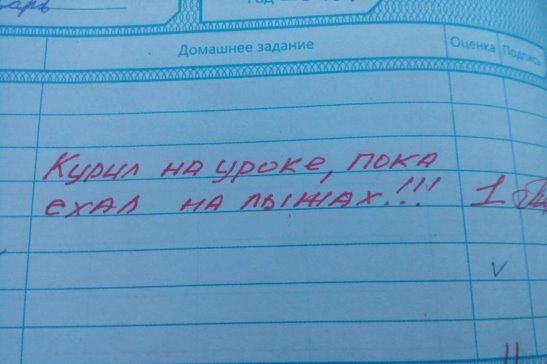 Домашнее задание
Оценка
Подпись
Курил на уроке, пока
ехал на лыжах!!! 1